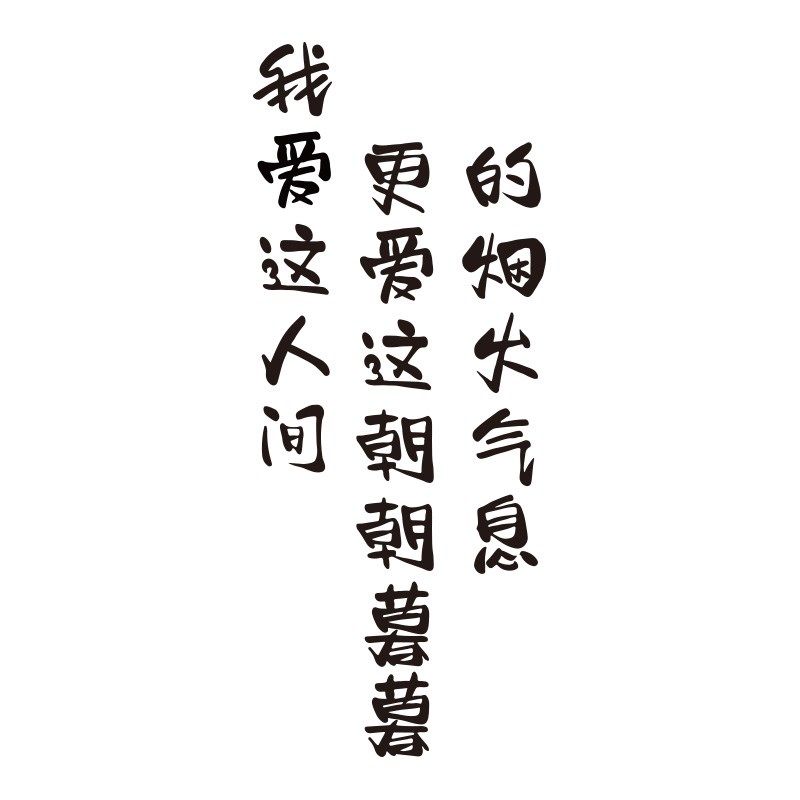 我爱这人间
更爱这朝朝暮暮
的烟火气息